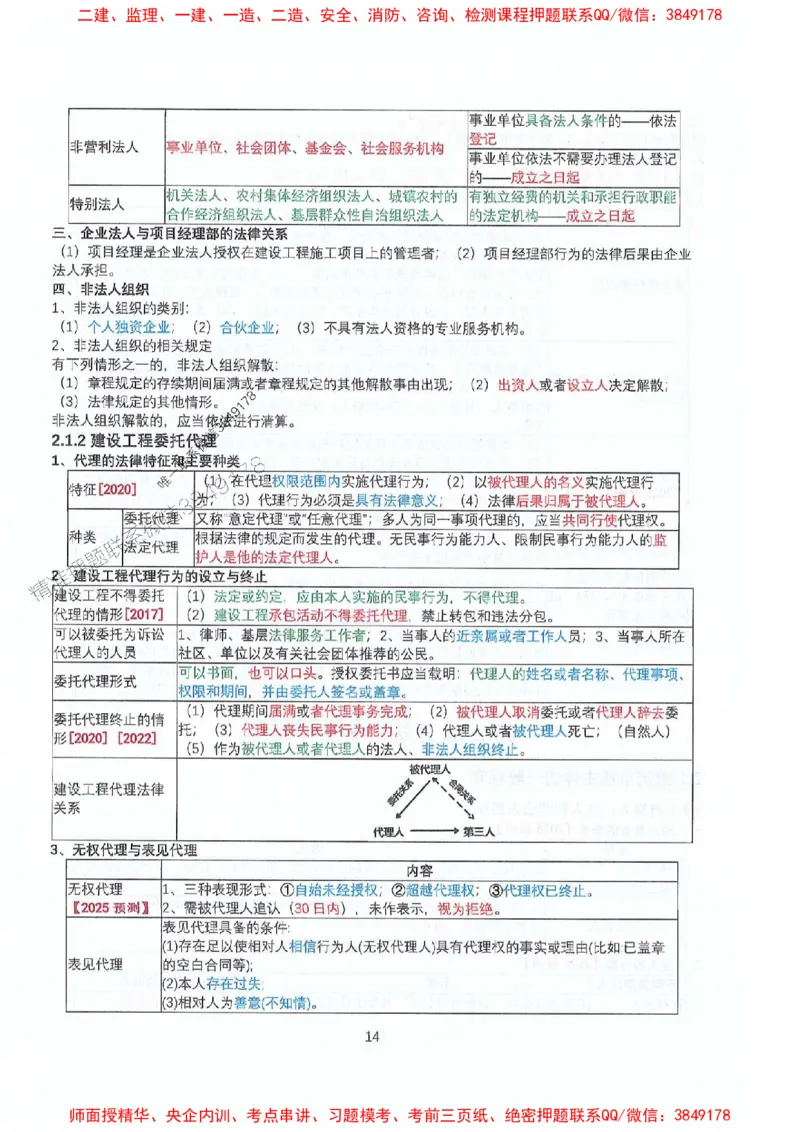 二建、监理、一建、一造、二造、安全、消防、咨询、检测课程押题联系QQ/微信：3849178
非营利法人
事业单位、社会团体、基金会、社会服务机构
事业单位具备法人条件的——依法
登记
事业单位依法不需要办理法人登记
的——成立之日起
特别法人
机关法人、农村集体经济组织法人、城镇农村的
合作经济组织法人、基层群众性自治组织法人
有独立经费的机关和承担行政职能
的法定机构——成立之日起
三、企业法人与项目经理部的法律关系
（1）项目经理是企业法人授权在建设工程施工项目上的管理者；（2）项目经理部行为的法律后果由企业
法人承担。
四、非法人组织
1、非法人组织的类别：
（1）个人独资企业；（2）合伙企业；（3）不具有法人资格的专业服务机构。
2、非法人组织的相关规定
有下列情形之一的，非法人组织解散：
（1）章程规定的存续期间届满或者章程规定的其他解散事由出现；（2）出资人或者设立人决定解散；
（3）法律规定的其他情形。
非法人组织解散的，应当依法进行清算。
2.1.2 建设工程委托代理
1、代理的法律特征和主要种类
特征[2020]
（1）在代理权限范围内实施代理行为；（2）以被代理人的名义实施代理行
为；（3）代理行为必须是具有法律意义；（4）法律后果归属于被代理人。
种类
委托代理
又称“意定代理”或“任意代理”；多人为同一事项代理的，应当共同行使代理权。
法定代理
根据法律的规定而发生的代理。无民事行为能力人、限制民事行为能力人的监
护人是他的法定代理人。
2、建设工程代理行为的设立与终止
建设工程不得委托
代理的情形[2017]
（1）法定或约定，应由本人实施的民事行为，不得代理。
（2）建设工程承包活动不得委托代理，禁止转包和违法分包。
可以被委托为诉讼
代理人的人员
1、律师、基层法律服务工作者；2、当事人的近亲属或者工作人员；3、当事人所在
社区、单位以及有关社会团体推荐的公民。
委托代理形式
可以书面，也可以口头。授权委托书应当载明：代理人的姓名或者名称、代理事项、
权限和期间，并由委托人签名或盖章。
委托代理终止的情
形[2020] [2022]
（1）代理期间届满或者代理事务完成；（2）被代理人取消委托或者代理人辞去委
托；（3）代理人丧失民事行为能力；（4）代理人或者被代理人死亡；（自然人）
（5）作为被代理人或者代理人的法人、非法人组织终止。
建设工程代理法律
关系
被代理人
委托关系
合同关系
代理人
第三人
3、无权代理与表见代理
内容
无权代理
【2025预测】
1、三种表现形式：①自始未经授权；②超越代理权；③代理权已终止。
2、需被代理人追认（30日内），未作表示，视为拒绝。
表见代理
表见代理具备的条件:
(1)存在足以使相对人相信行为人(无权代理人)具有代理权的事实或理由(比如:已盖章
的空白合同等);
(2)本人存在过失;
(3)相对人为善意(不知情)。
14
师面授精华、央企内训、考点串讲、习题模考、考前三页纸、绝密押题联系QQ/微信：3849178